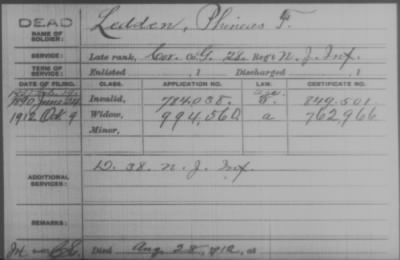 DEAD
NAME OF SOLDIER: Ledden, Phineas F.
SERVICE: Late rank, Cor. Co. G. 28 Reg't N. J. Inf.
TERM OF SERVICE: Enlisted , 1 Discharged , 1
DATE OF FILING. CLASS. APPLICATION NO. LAW. CERTIFICATE NO.
1890 June 24 Invalid, 784,038. 849.501
1912 Oct 9 Widow, 994,560 a 762,966
Minor,
ADDITIONAL SERVICES: D. 38. N. J. Inf.
REMARKS:
Died Aug 28, 1912, at